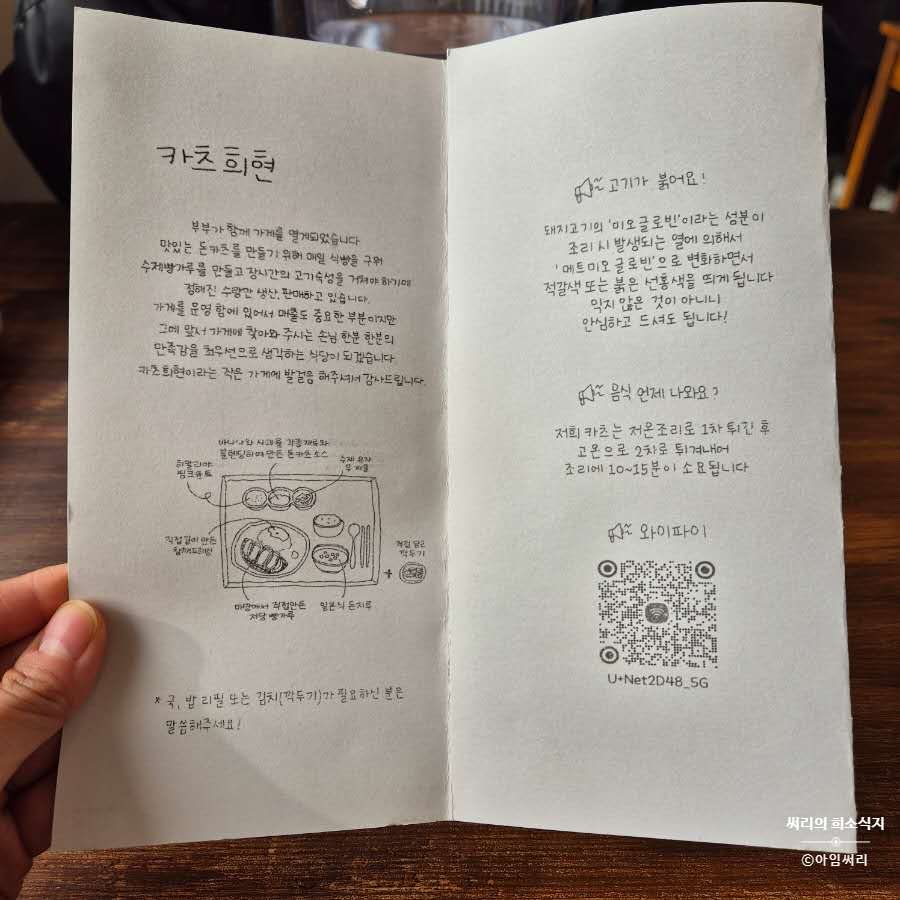 카츠 희현
부부가 함께 가게를 열게되었습니다
맛있는 돈카츠를 만들기 위해 매일 식빵을 구워
수제빵가루를 만들고 장시간의 고기숙성을 거쳐야 하기에
정해진 수량만 생산, 판매하고 있습니다.
가게를 운영 함에 있어서 매출도 중요한 부분이지만
그에 앞서 가게에 찾아와 주시는 손님 한분 한분의
만족감을 최우선으로 생각하는 식당이 되겠습니다
카츠희현이라는 작은 가게에 발걸음 해주셔서 감사드립니다.
바나나와 사과를 각종재료와
블렌딩하여 만든 돈카츠 소스
히말라야
핑크솔트
수제 유자
무 피클
직접 갈아 만든
참깨드레싱
직접 담근
깍두기
+
매장에서 직접만든
저당 빵가루
일본식 돈지루
* 국, 밥 리필 또는 김치(깍두기)가 필요하신 분은
말씀해주세요!
고기가 붉어요!
돼지고기의 '미오글로빈'이라는 성분이
조리 시 발생되는 열에 의해서
'메트미오글로빈'으로 변화하면서
적갈색 또는 붉은 선홍색을 띄게 됩니다
익지 않은 것이 아니니
안심하고 드셔도 됩니다!
음식 언제 나와요?
저희 카츠는 저온조리로 1차 튀긴 후
고온으로 2차로 튀겨내어
조리에 10~15분이 소요됩니다
와이파이
U+Net2D48_5G
써리의 희소식지
©아임써리